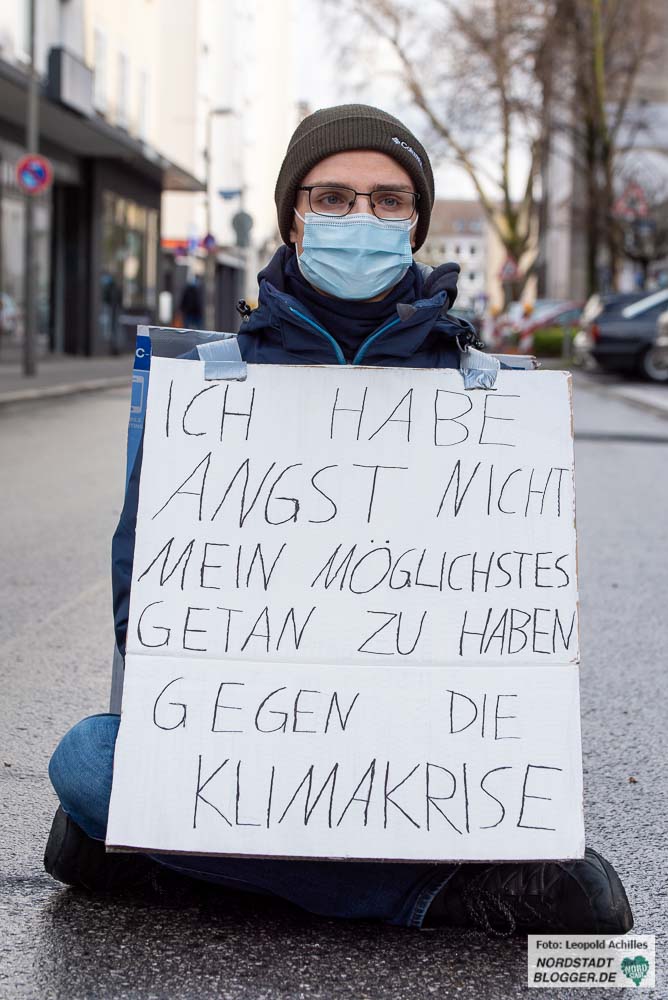 Columbia
ICH HABE
ANGST NICHT
MEIN MÖGLICHSTES
GETAN ZU HABEN
GEGEN DIE
KLIMAKRISE
Foto: Leopold Achilles
NORDSTADT
BLOGGER.DE